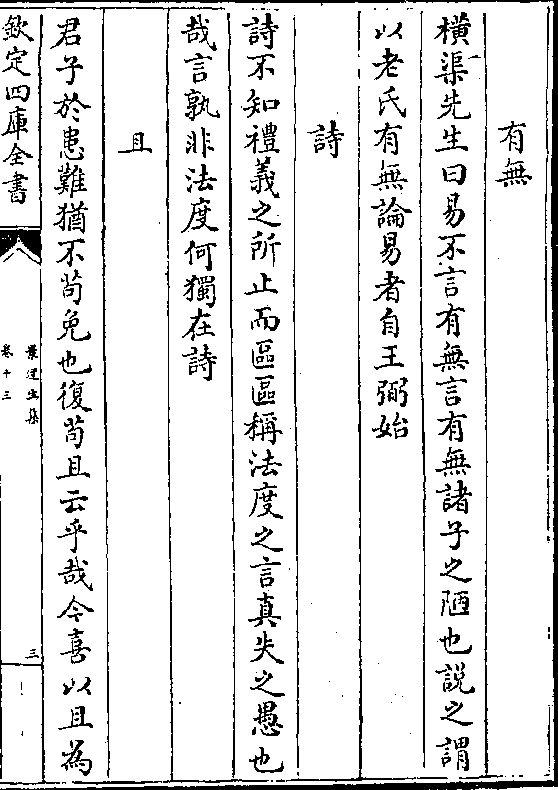 有無
橫渠先生曰易不言有無言有無諸子之陋也説之謂
以老氏有無論易者自王弼始
詩
詩不知禮義之所止而區區稱法度之言真失之愚也
哉言孰非法度何獨在詩
且
君子於患難猶不苟免也復苟且云乎哉今喜以且為
欽定四庫全書
卷十三
三